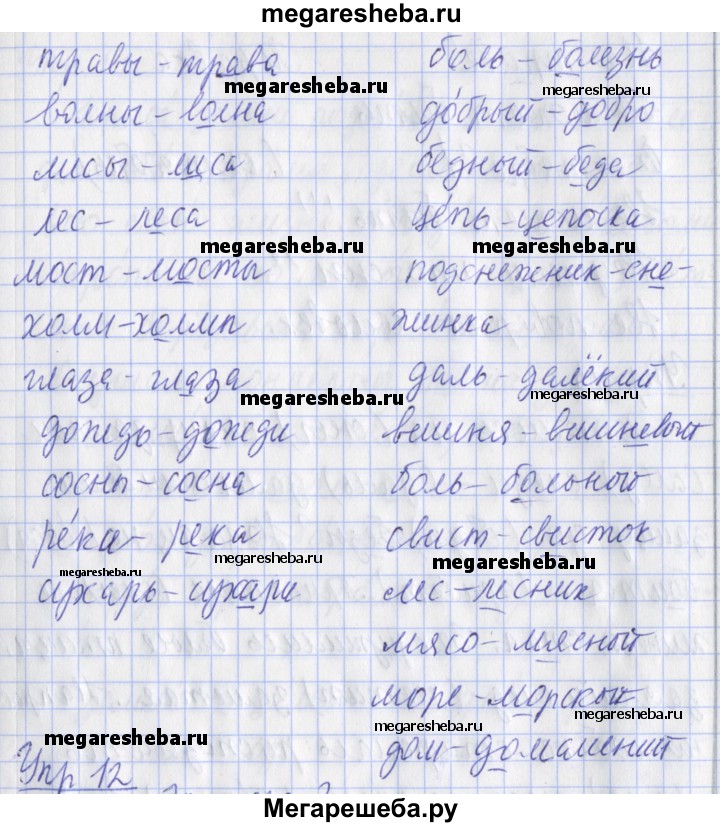 megaresheba.ru
травы - трава
боль - болезнь
megaresheba.ru
megaresheba.ru
волны - волна
добрый - добро
megaresheba.ru
лисы - лиса
бедный - беда
megaresheba.ru
лес - леса
цепь - цепочка
megaresheba.ru
megaresheba.ru
мост - мосты
подснежник - сне-
холм - холмы
жинка
глаза - глаза
даль - далёкий
megaresheba.ru
megaresheba.ru
дождь - дожди
вишня -
megaresheba.ru
сосны - сосна
боль - больной
река - река
свист - свисток
megaresheba.ru
megaresheba.ru
megaresheba.ru
сухарь - сухари
лес - лесник
мясо - мясной
море -
megaresheba.ru
megaresheba.ru
megaresheba.ru
дом -
Упр 12
Мегарешеба.ру